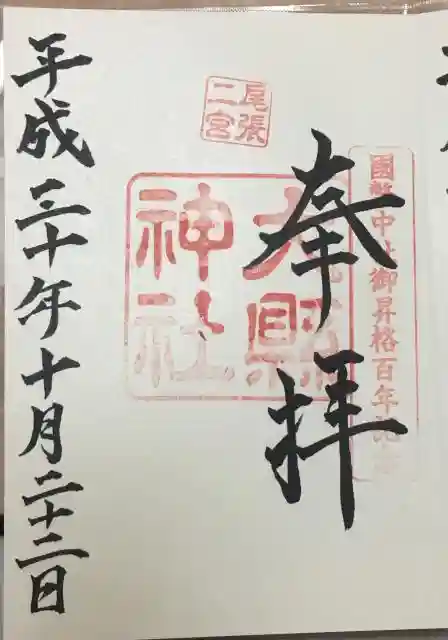 奉拝
國幣中社御昇格百年記念
尾張
二宮
大縣
神社
平成三十年十月二十二日